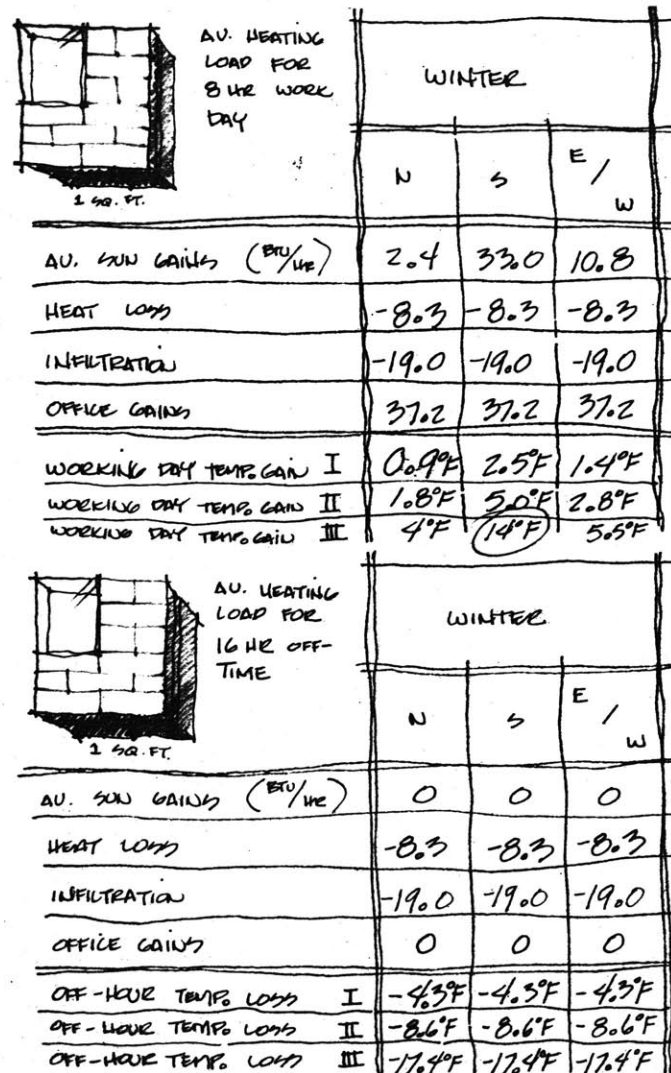 AV. HEATING
LOAD FOR
8 HR WORK
DAY
1 SQ. FT.
WINTER
N S E/W
AV. SUN GAINS (BTU/HR) 2.4 33.0 10.8
HEAT LOSS -8.3 -8.3 -8.3
INFILTRATION -19.0 -19.0 -19.0
OFFICE GAINS 37.2 37.2 37.2
WORKING DAY TEMP. GAIN I 0.9°F 2.5°F 1.4°F
WORKING DAY TEMP. GAIN II 1.8°F 5.0°F 2.8°F
WORKING DAY TEMP. GAIN III 4°F 14°F 5.5°F
AV. HEATING
LOAD FOR
16 HR OFF-
TIME
1 SQ. FT.
WINTER
N S E/W
AV. SUN GAINS (BTU/HR) 0 0 0
HEAT LOSS -8.3 -8.3 -8.3
INFILTRATION -19.0 -19.0 -19.0
OFFICE GAINS 0 0 0
OFF-HOUR TEMP. LOSS I -4.3°F -4.3°F -4.3°F
OFF-HOUR TEMP. LOSS II -8.6°F -8.6°F -8.6°F
OFF-HOUR TEMP. LOSS III -17.4°F -17.4°F -17.4°F